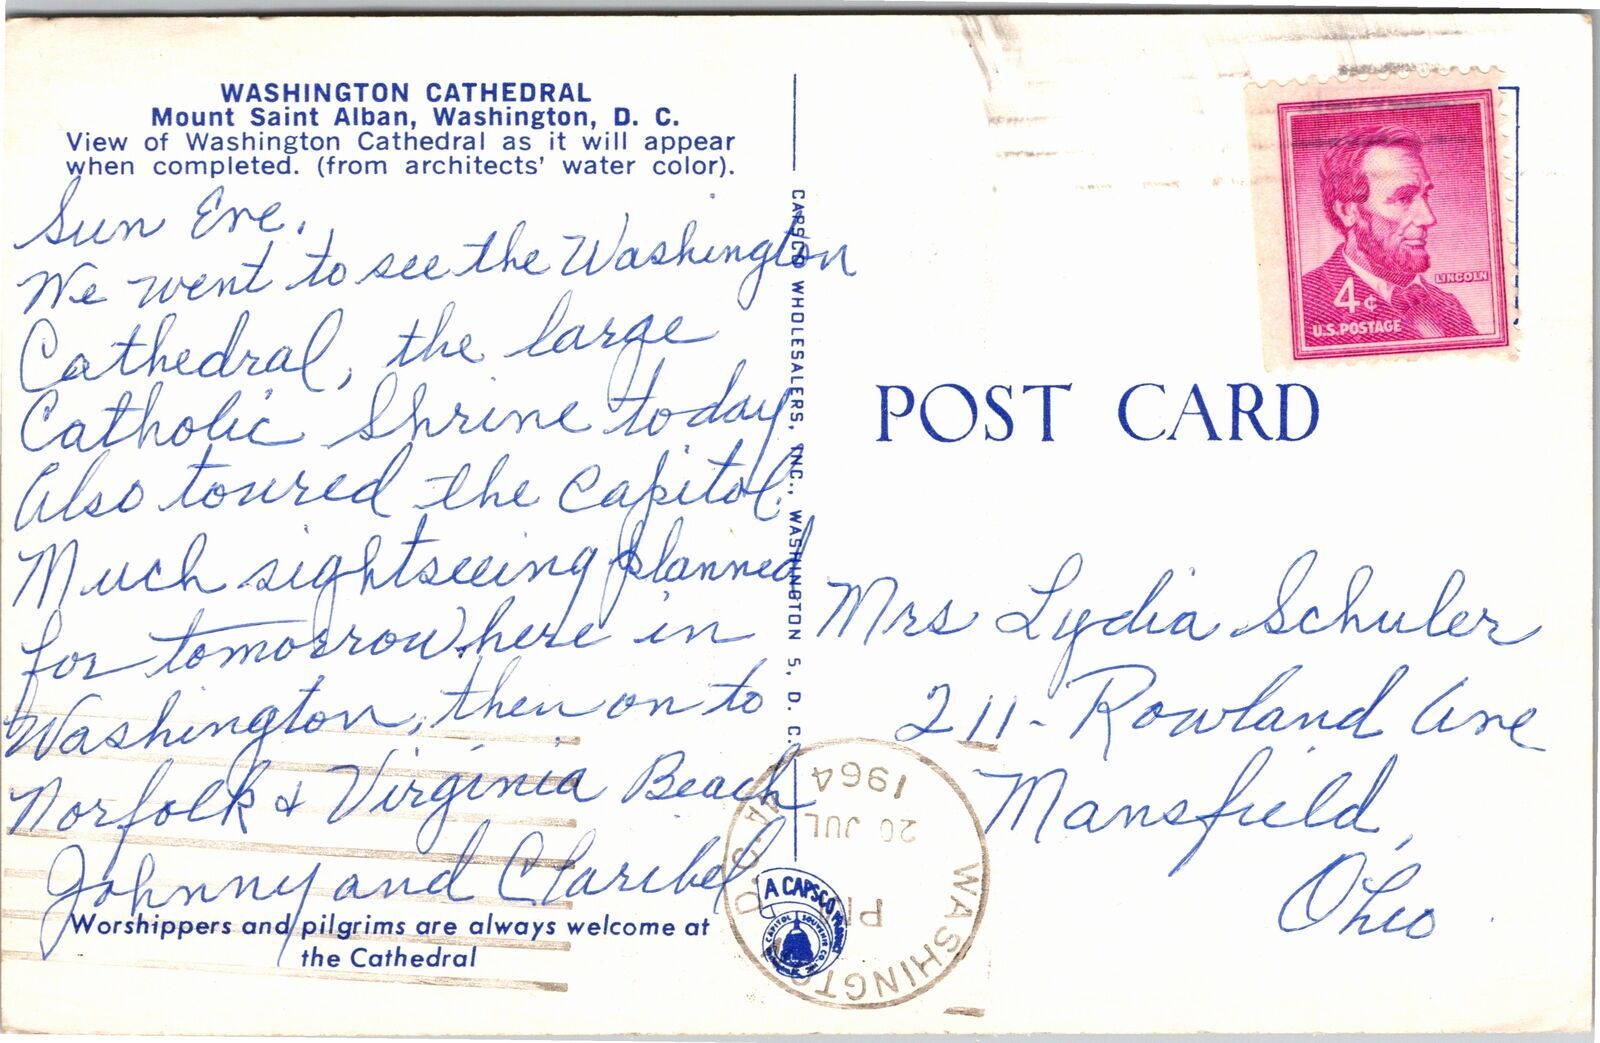 WASHINGTON CATHEDRAL
Mount Saint Alban, Washington, D. C.
View of Washington Cathedral as it will appear
when completed. (from architects' water color).
Sun Eve.
We went to see the Washington
Cathedral, the large
Catholic Shrine today
Also toured the Capitol.
Much sightseeing planned
for tomorrow here in
Washington, then on to
Norfolk & Virginia Beach
Johnny and Claribel
Worshippers and pilgrims are always welcome at
the Cathedral
CAPSCO WHOLESALERS, INC., WASHINGTON 5, D. C.
A CAPSCO PRODUCT
CAPITOL SOUVENIR CO. INC.
LINCOLN
4¢
U.S. POSTAGE
POST CARD
Mrs Lydia Schuler
211 - Rowland Ave
Mansfield,
Ohio
WASHINGTON, D.C.
PM
20 JUL
1964